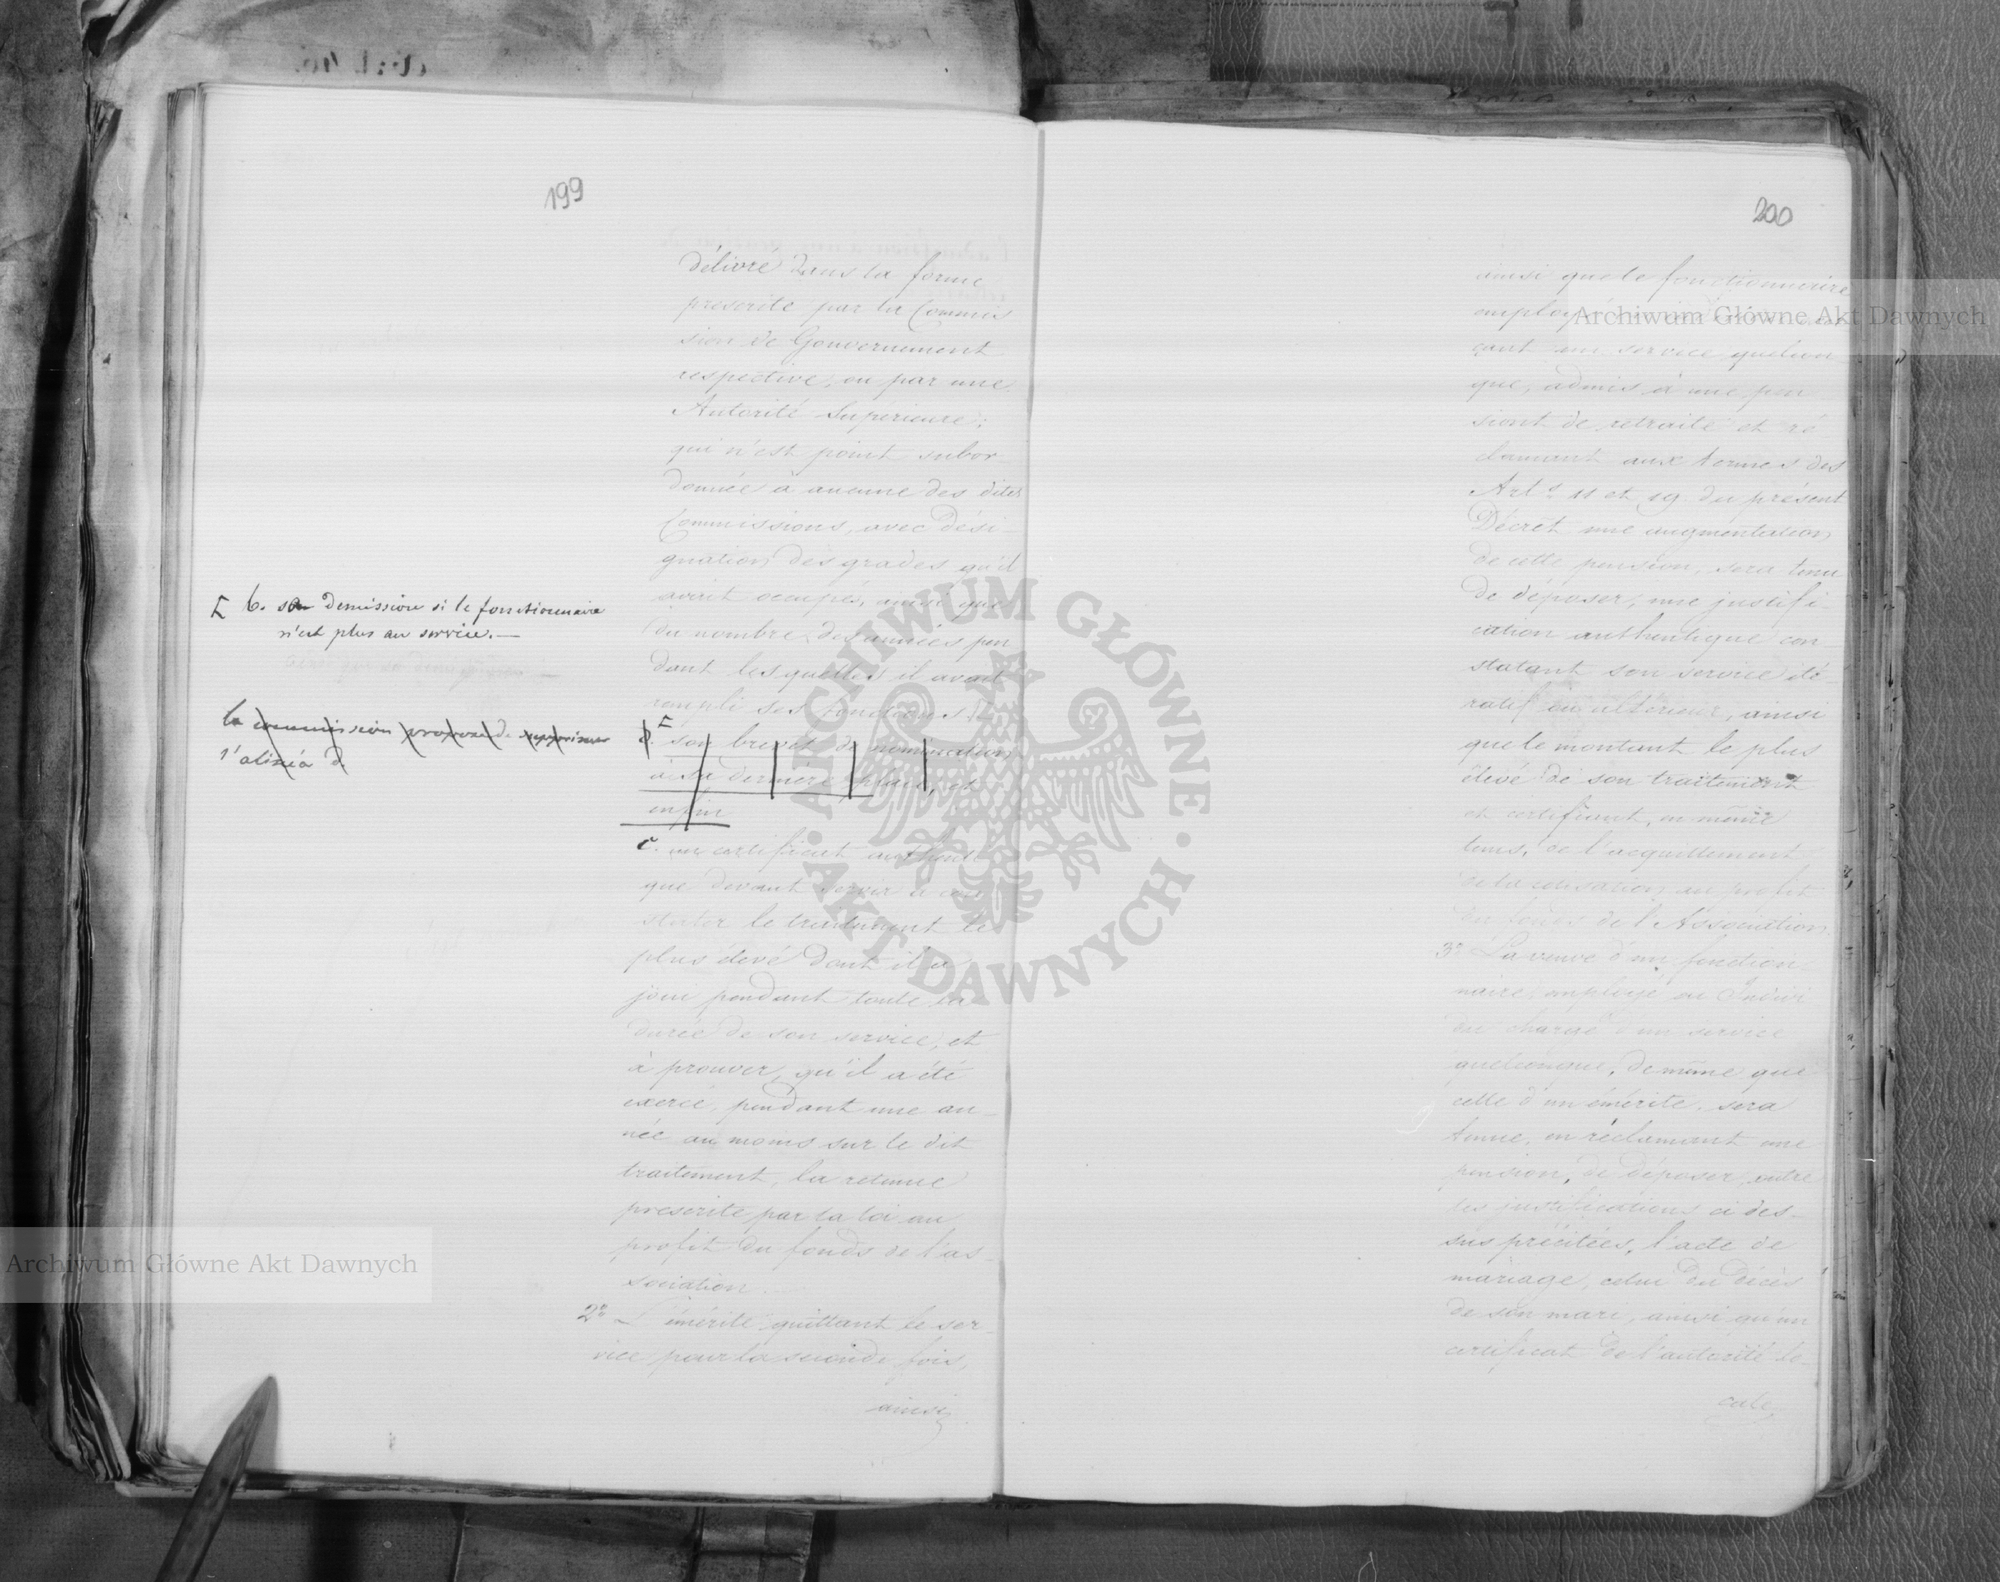 199
délivré dans la forme
prescrite par la Commis
sion de Gouvernement
respective, ou par une
Autorité Superieure;
qui n'est point subor-
donnée à aucune des dites
Commissions, avec dési-
gnation des grades qu'il
avait occupés, ainsi que
du nombre des années pen
dant lesquelles il avait
rempli ses fonctions
b. son brevet de nomination
à sa dernière place, et
enfin
c. un certificat authenti
que devant servir à con
stater le traitement le
plus élevé dont il a
joui pendant toute la
durée de son service, et
à prouver, qu'il a été
exercé, pendant une an-
née au moins sur le dit
traitement, la retenue
prescrite par la loi au
profit du fonds de l'as-
sociation.
2º L'émérite quittant le ser-
vice pour la seconde fois,
ainsi
b. sa demission si le fonctionnaire
n'est plus au service.—
la commission propose de supprimer
l'alinéa d.
200
ainsi que le fonctionnaire
employé
çant un service quelcon
que, admis à une pen
siont de retraite et ré
clamant aux termes des
Art.s 11 et 19 du présent
Décret une augmentation
de cette pension, sera tenu
de déposer, une justifi-
cation authentique con-
statant son service ité-
ratif ou ultérieur, ainsi
que le montant le plus
élevé de son traitement
et certifiant, en même
tems, de l'acquittement
de la cotisation au profit
du fonds de l'Association
3º La veuve d'un fonction-
naire, employé ou Indivi
du chargé d'un service
quelconque, de même que
celle d'un émérite, sera
tenue, en réclamant une
pension, de déposer, outre
les justifications ci des-
sus précitées, l'acte de
mariage, celui du décès
de son mari, ainsi qu'un
certificat de l'autorité lo-
cale
Archiwum Główne Akt Dawnych
ARCHIWUM GŁÓWNE
· AKT DAWNYCH ·
Archiwum Główne Akt Dawnych